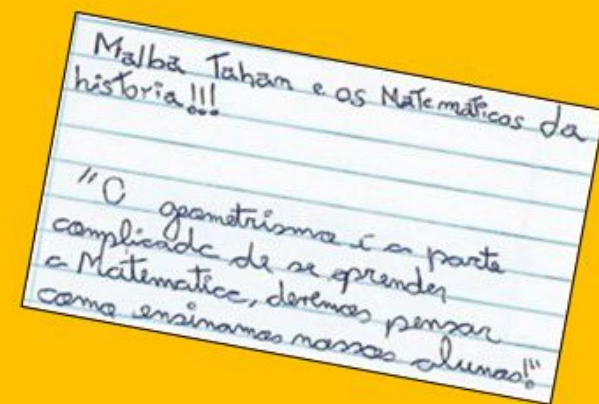 Malba Tahan e os Matemáticos da
historia!!!
"O geometrismo é a parte
complicada de se aprender
a Matematica, devemos pensar
como ensinamos nossos alunos!"